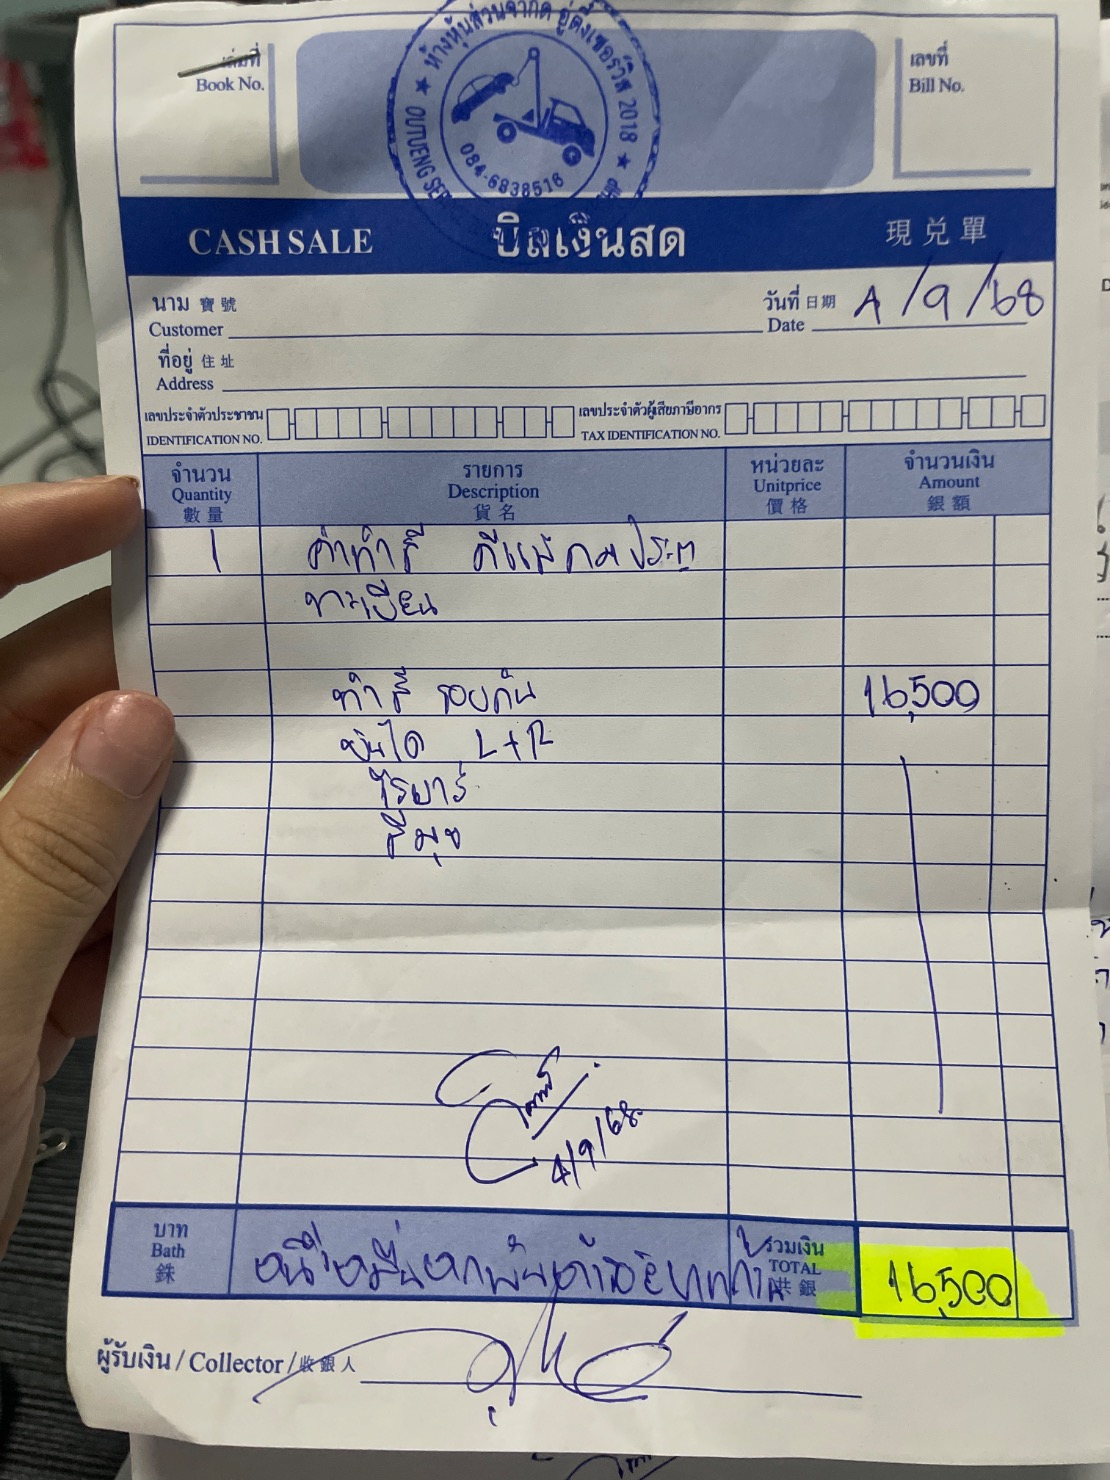 ห้างหุ้นส่วนจำกัด อู่ตึ๋งเซอร์วิส 2018
OUTUENG
084-6838516
เล่มที่
Book No.
เลขที่
Bill No.
CASH SALE บิลเงินสด 現兌單
นาม 寶號
Customer
วันที่ 日期 4/9/68
Date
ที่อยู่ 住址
Address
เลขประจำตัวประชาชน
IDENTIFICATION NO.
เลขประจำตัวผู้เสียภาษีอากร
TAX IDENTIFICATION NO.
จำนวน รายการ หน่วยละ จำนวนเงิน
Quantity Description Unitprice Amount
數量 貨名 價格 銀額
1 ค่าทำสี
ทะเบียน
ทำสี รอบคัน 16,500
บันได L+R
โรบาร์
สีมุข
4/9/68
บาท
Bath
銖
หนึ่งหมื่นหกพันห้าร้อยบาทถ้วน
รวมเงิน
TOTAL
共銀
16,500
ผู้รับเงิน / Collector / 收銀人